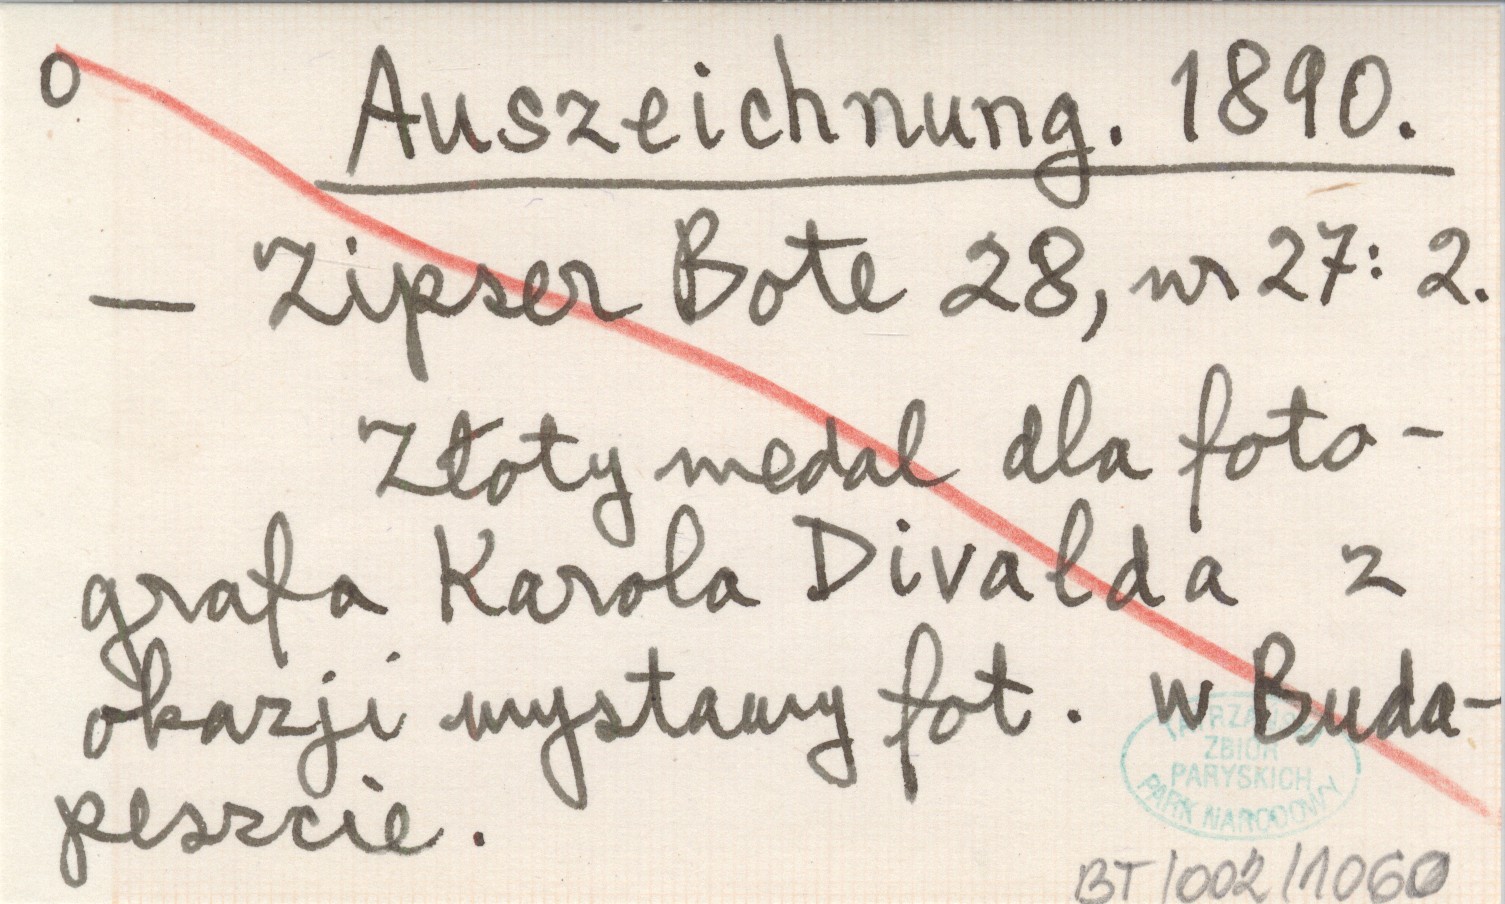 O
Auszeichnung. 1890.
— Zipser Bote 28, nr 27: 2.
Złoty medal dla foto-
grafa Karola Divalda z
okazji wystawy fot. w Buda-
peszcie.
TATRZAŃSKI
ZBIÓR
PARYSKICH
PARK NARODOWY
BT/002/1060